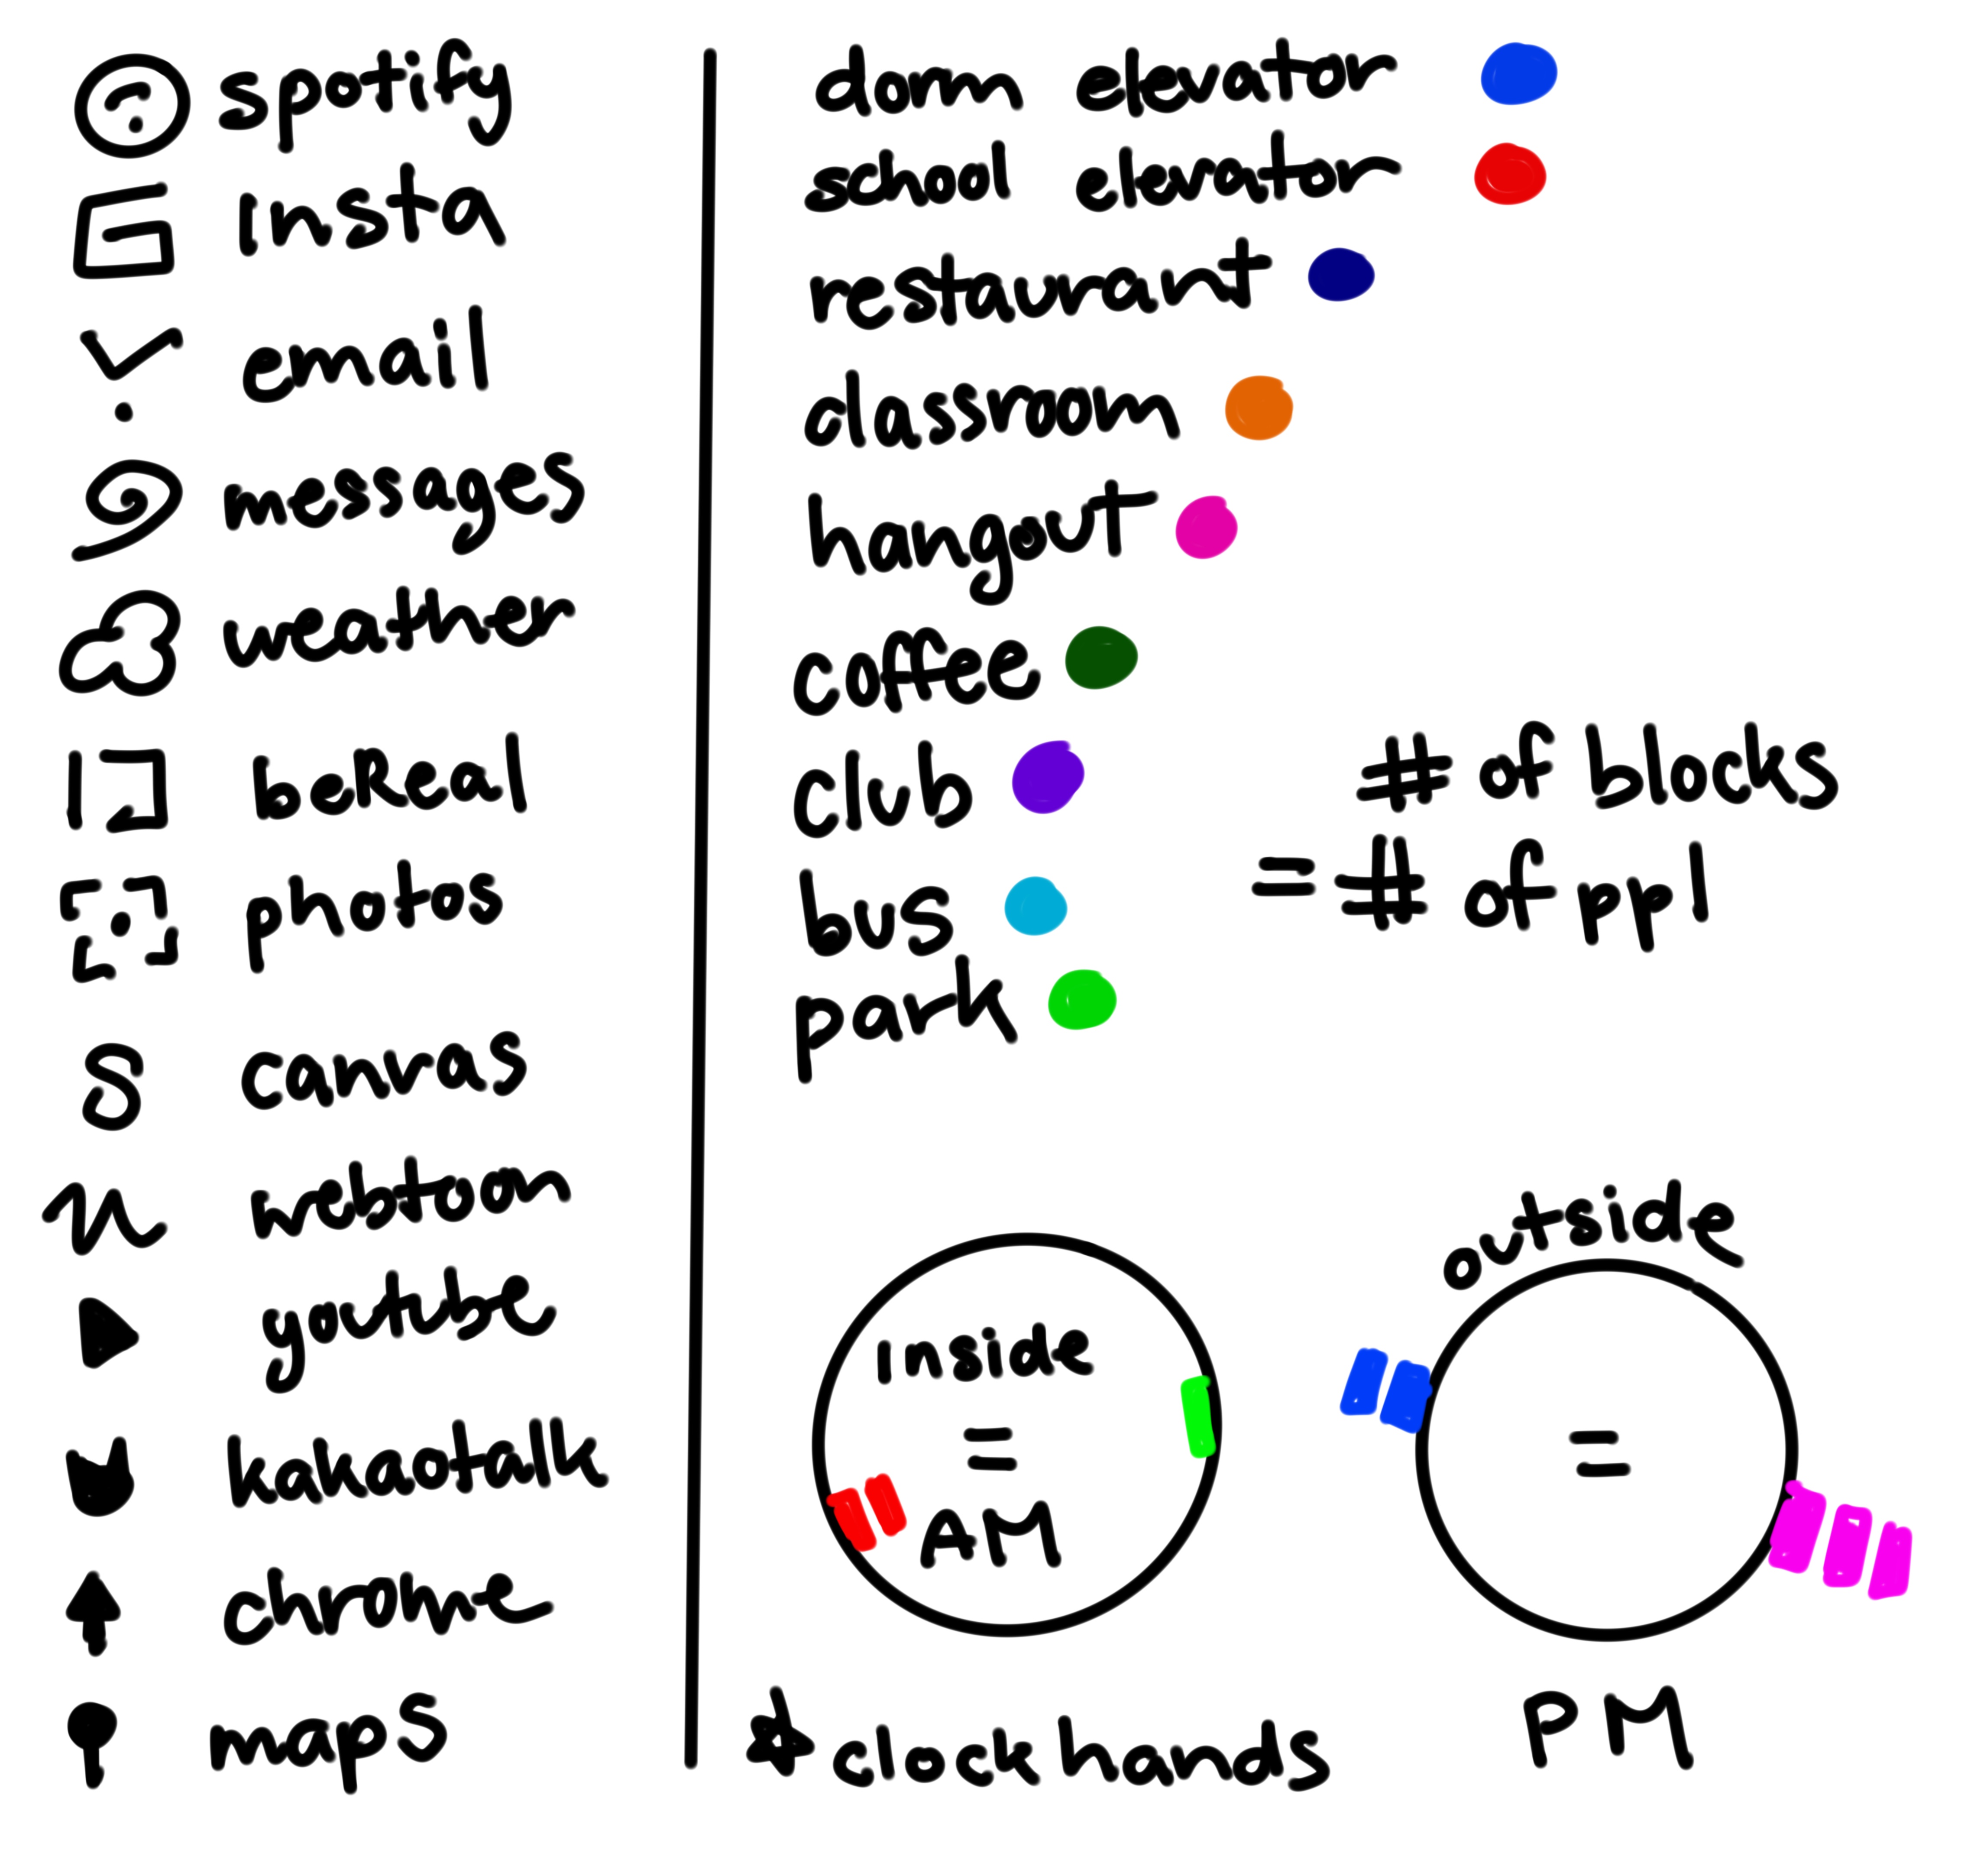 spotify
Insta
email
messages
weather
beReal
photos
canvas
webtoon
youtube
kakaotalk
chrome
maps
dorm elevator
school elevator
restaurant
classroom
hangout
coffee
club
bus
park
# of blocks
= # of ppl
inside
=
AM
outside
=
PM
* clock hands